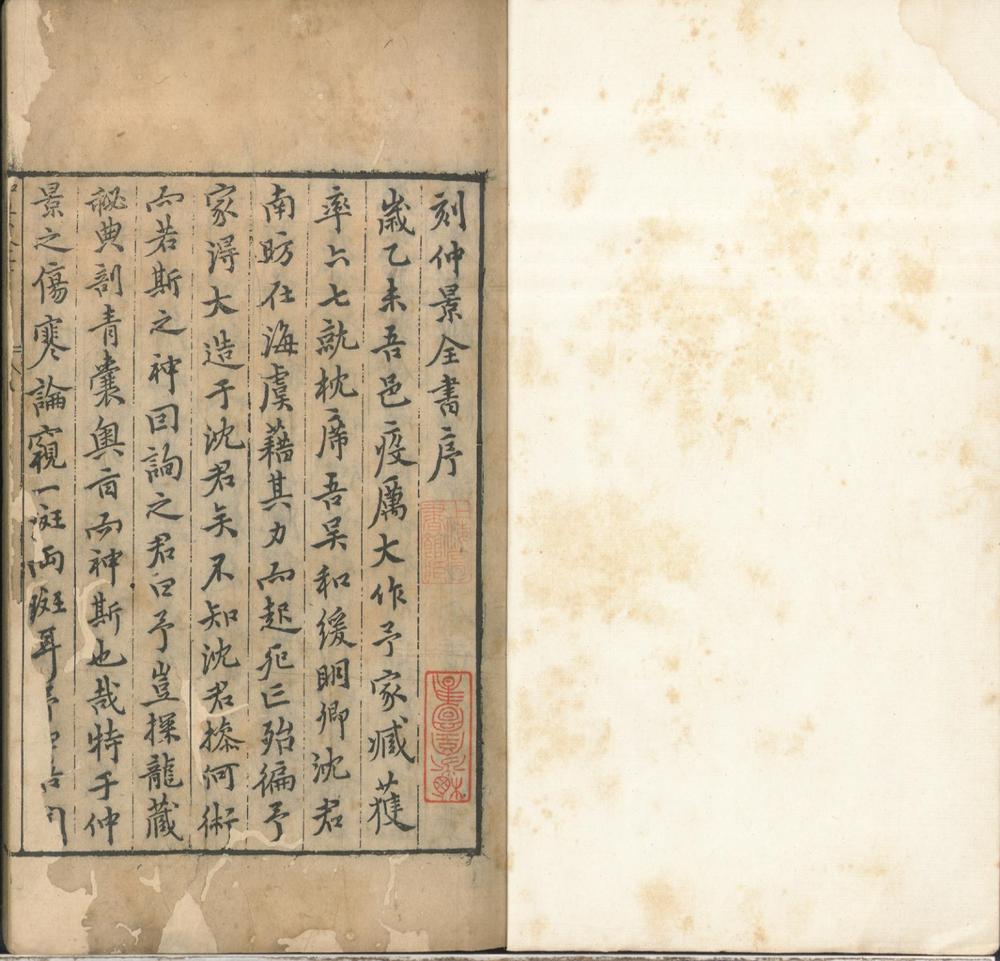 刻仲景全書序
歲乙未吾邑疫厲大作予家臧獲
率六七就枕席吾吳和緩明卿沈君
南昉在海虞藉其力而起死亡殆徧予
家得大造于沈君矣不知沈君操何術
而若斯之神因詢之君曰予豈探龍藏
祕典剖青囊奧旨而神斯也哉特于仲
景之傷寒論窺一斑兩斑耳